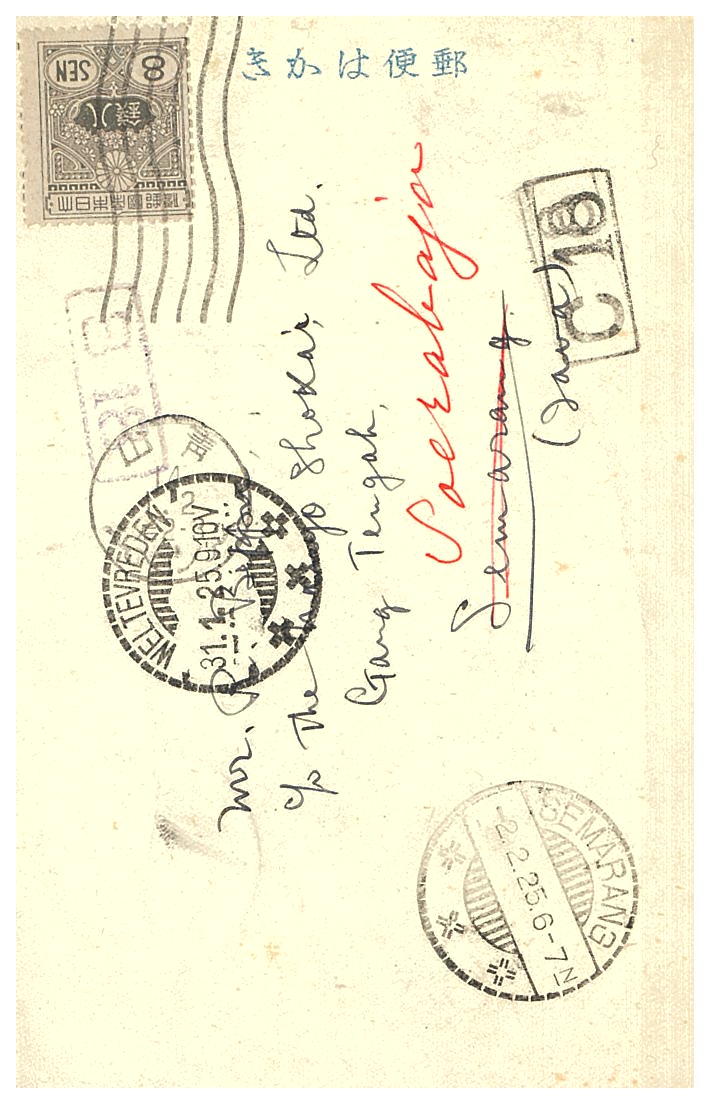 郵便はかき
8 SEN
錢八
大日本帝國郵便
C 18
31
WELTEVREDEN
31.1.25.9-10V
Mr. R.
c/o The yo Shokai, Ltd.
Gang Tengah,
Soerabaja
Semarang.
(Java)
SEMARANG
-2.2.25.6-7N